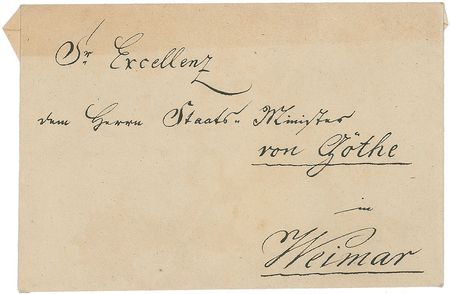 Sr Excellenz
dem Herrn Staats-Minister
von Göthe
in
Weimar